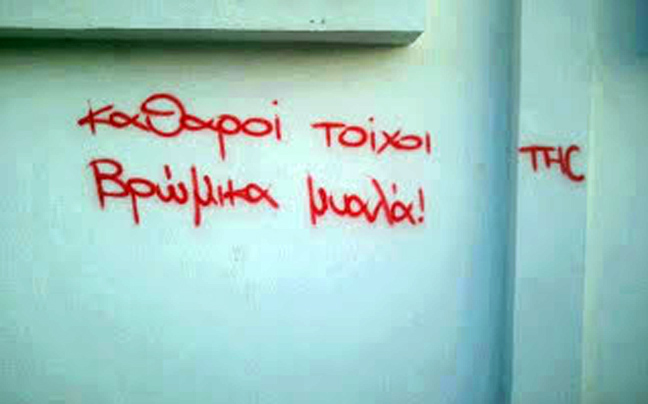 καθαροί τοίχοι
Βρώμικα μυαλά!
THC